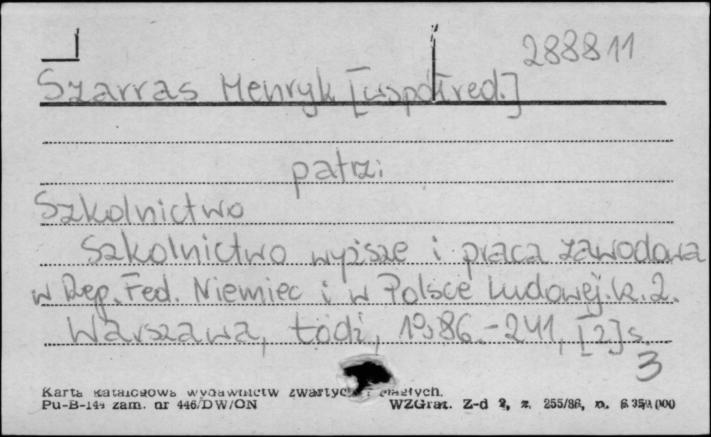 288811
Szarras Henryk [współred.]
patrz:
Szkolnictwo
Szkolnictwo wyższe i praca zawodowa
w Rep. Fed. Niemiec i w Polsce Ludowej. K. 2.
Warszawa, Łódź, 1986. - 241, [2] s.
3
Karta katalogowa wydawnictw zwartych i ciągłych.
Pu-B-144 zam. nr 446/DW/ON WZGraf. Z-d 2, z. 255/86, n.